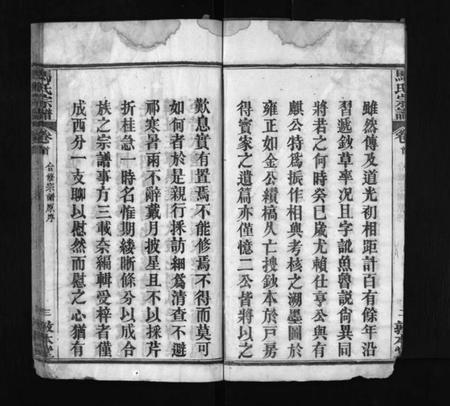 雖然傳及道光初相距計百有餘年沿
習遞欽草率况且字訛魚魯說尙異同
將者之何時癸巳歲尤賴仕亨公與有
麒公特爲振作相與考核之溯墨圖於
雍正如金公續稿久亡搜欽本於戸房
得寳家之遺篇亦僅憶二公皆將以之
歎息實有置焉不能修焉不得而莫可
如何者於是親行採訪細爲清查不避
祁寒暑雨不辭戴月披星且不以採芹
折桂急一時名惟期綾晣條分以成合
族之宗譜事方三載奈編輯受梓者僅
成西分一支聊以慰然而慰之心猶有
馬氏宗譜
卷首
合修宗譜原序
三
敦本堂
馬氏宗譜
卷首
敦本堂